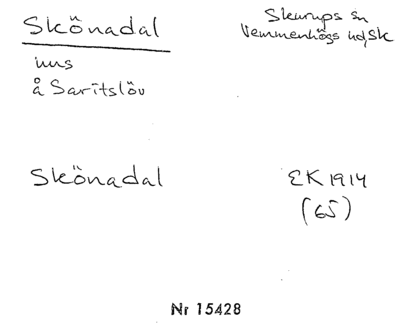 Skönadal
Skurups sn
Vemmenhögs hd, Sk
hus
å Saritslöv
Skönadal
EK 1914
(65)
Nr 15428